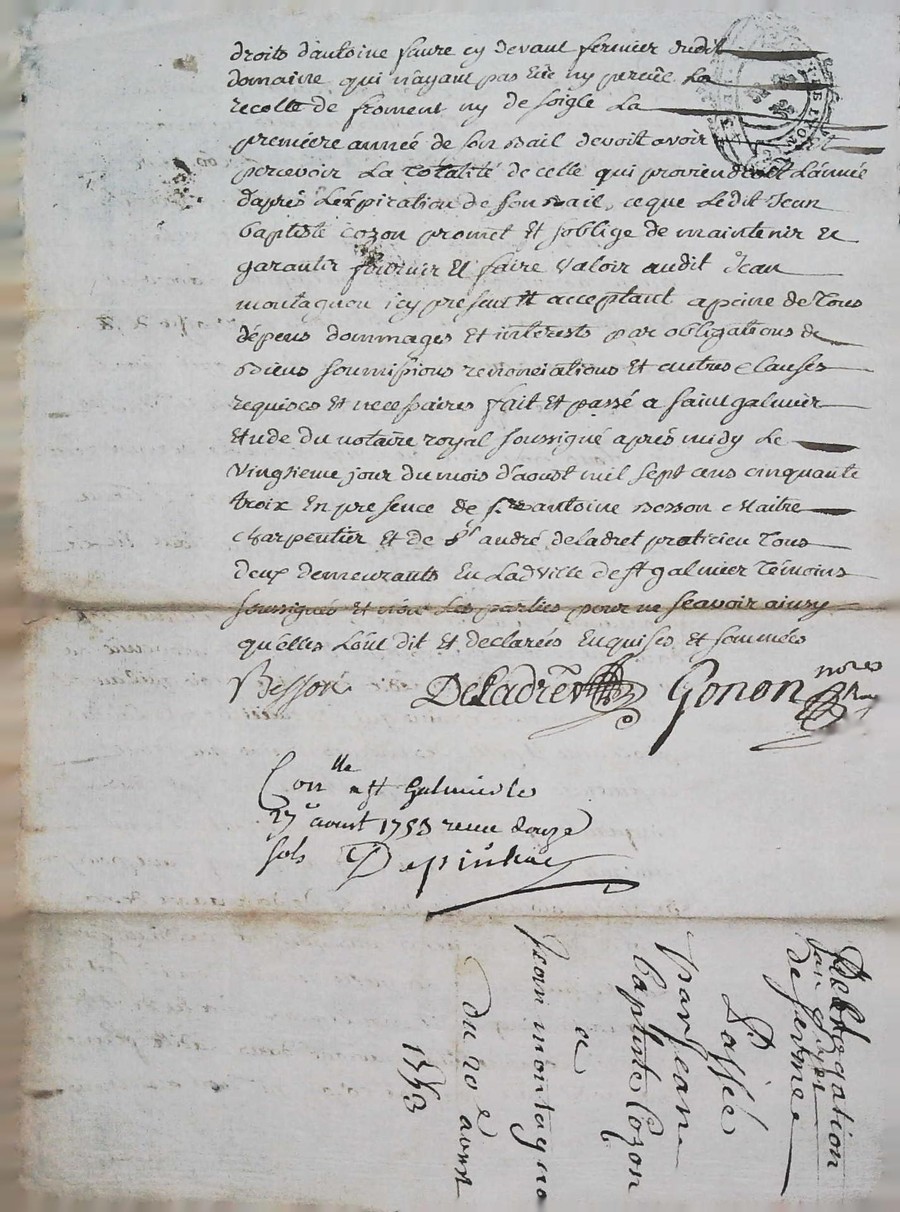 droits d'antoine faure cy devant fermier dudit
domaine qui n'ayant pas eue ny perceue La
recolte de froment ny de soigle La
premiere année de son Bail devoit avoir et
percevoir La totalité de celle qui proviendroit L'année
d'après L'expiration de son Bail, ce que Ledit Jean
baptiste cozon promet Et s'oblige de maintenir Et
garantir fournir Et faire valoir audit Jean
montagnon icy present Et acceptant a peine de tous
dépens dommages Et interests par obligations de
Biens soumissions renonciations Et autres Clauses
requises Et necessaires fait Et passé a saint galmier
Etude du notaire royal soussigné après midy Le
vingtieme jour du mois d'aoust mil sept cens cinquante
troix En presence de sr antoine Besson Maitre
charpentier Et de Sr andré deladret praticien tous
deux demeurants En Lad ville de st galmier témoins
soussignés Et non Les parties pour ne scavoir ainsy
qu'elles L'ont dit Et declarées Enquises Et sommées
Besson Deladrèt Gonon nore Ray
Conlle a st Galmier le
27 aoust 1753 receu douze
sols
de ferme
Passée
par Jean
baptiste Cozon
a
Jean montagno
du 20 e aoust
1753